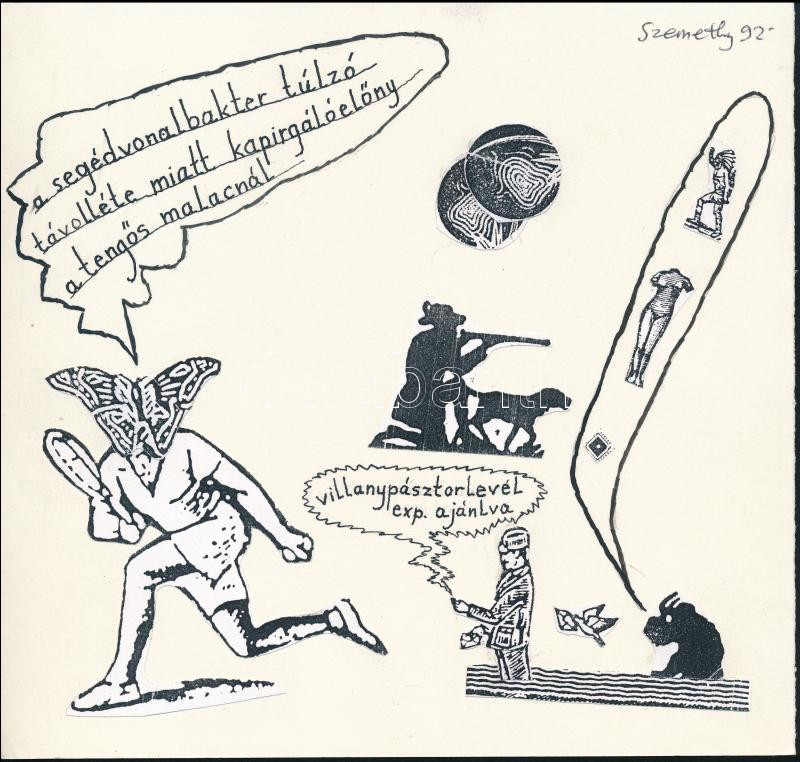 Szemethy 92
a segédvonalbakter túlzó
távolléte miatt kapirgálóelőny
a tengős malacnál
villanypásztorlevél
exp. ajánlva
darabanth